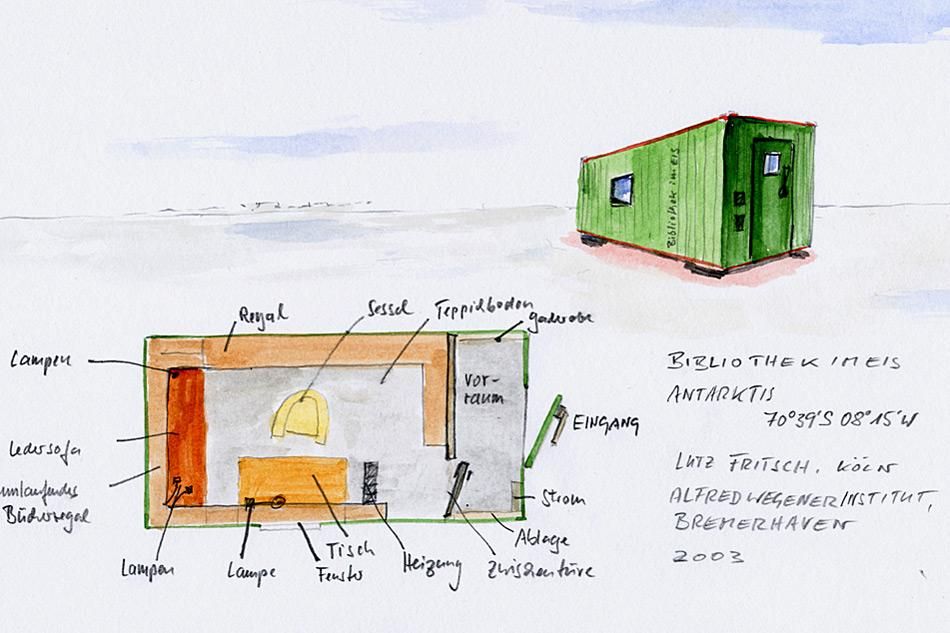 Bibliothek im Eis
Regal
Sessel
Teppichboden
Garderobe
Lampen
Vor-
raum
EINGANG
Ledersofa
umlaufendes
Bücherregal
Strom
Ablage
Lampen
Lampe
Tisch
Fenster
Heizung
Zwischentüre
BIBLIOTHEK IM EIS
ANTARKTIS
70°39'S 08°15'W
LUTZ FRITSCH, KÖLN
ALFRED WEGENER INSTITUT,
BREMERHAVEN
2003